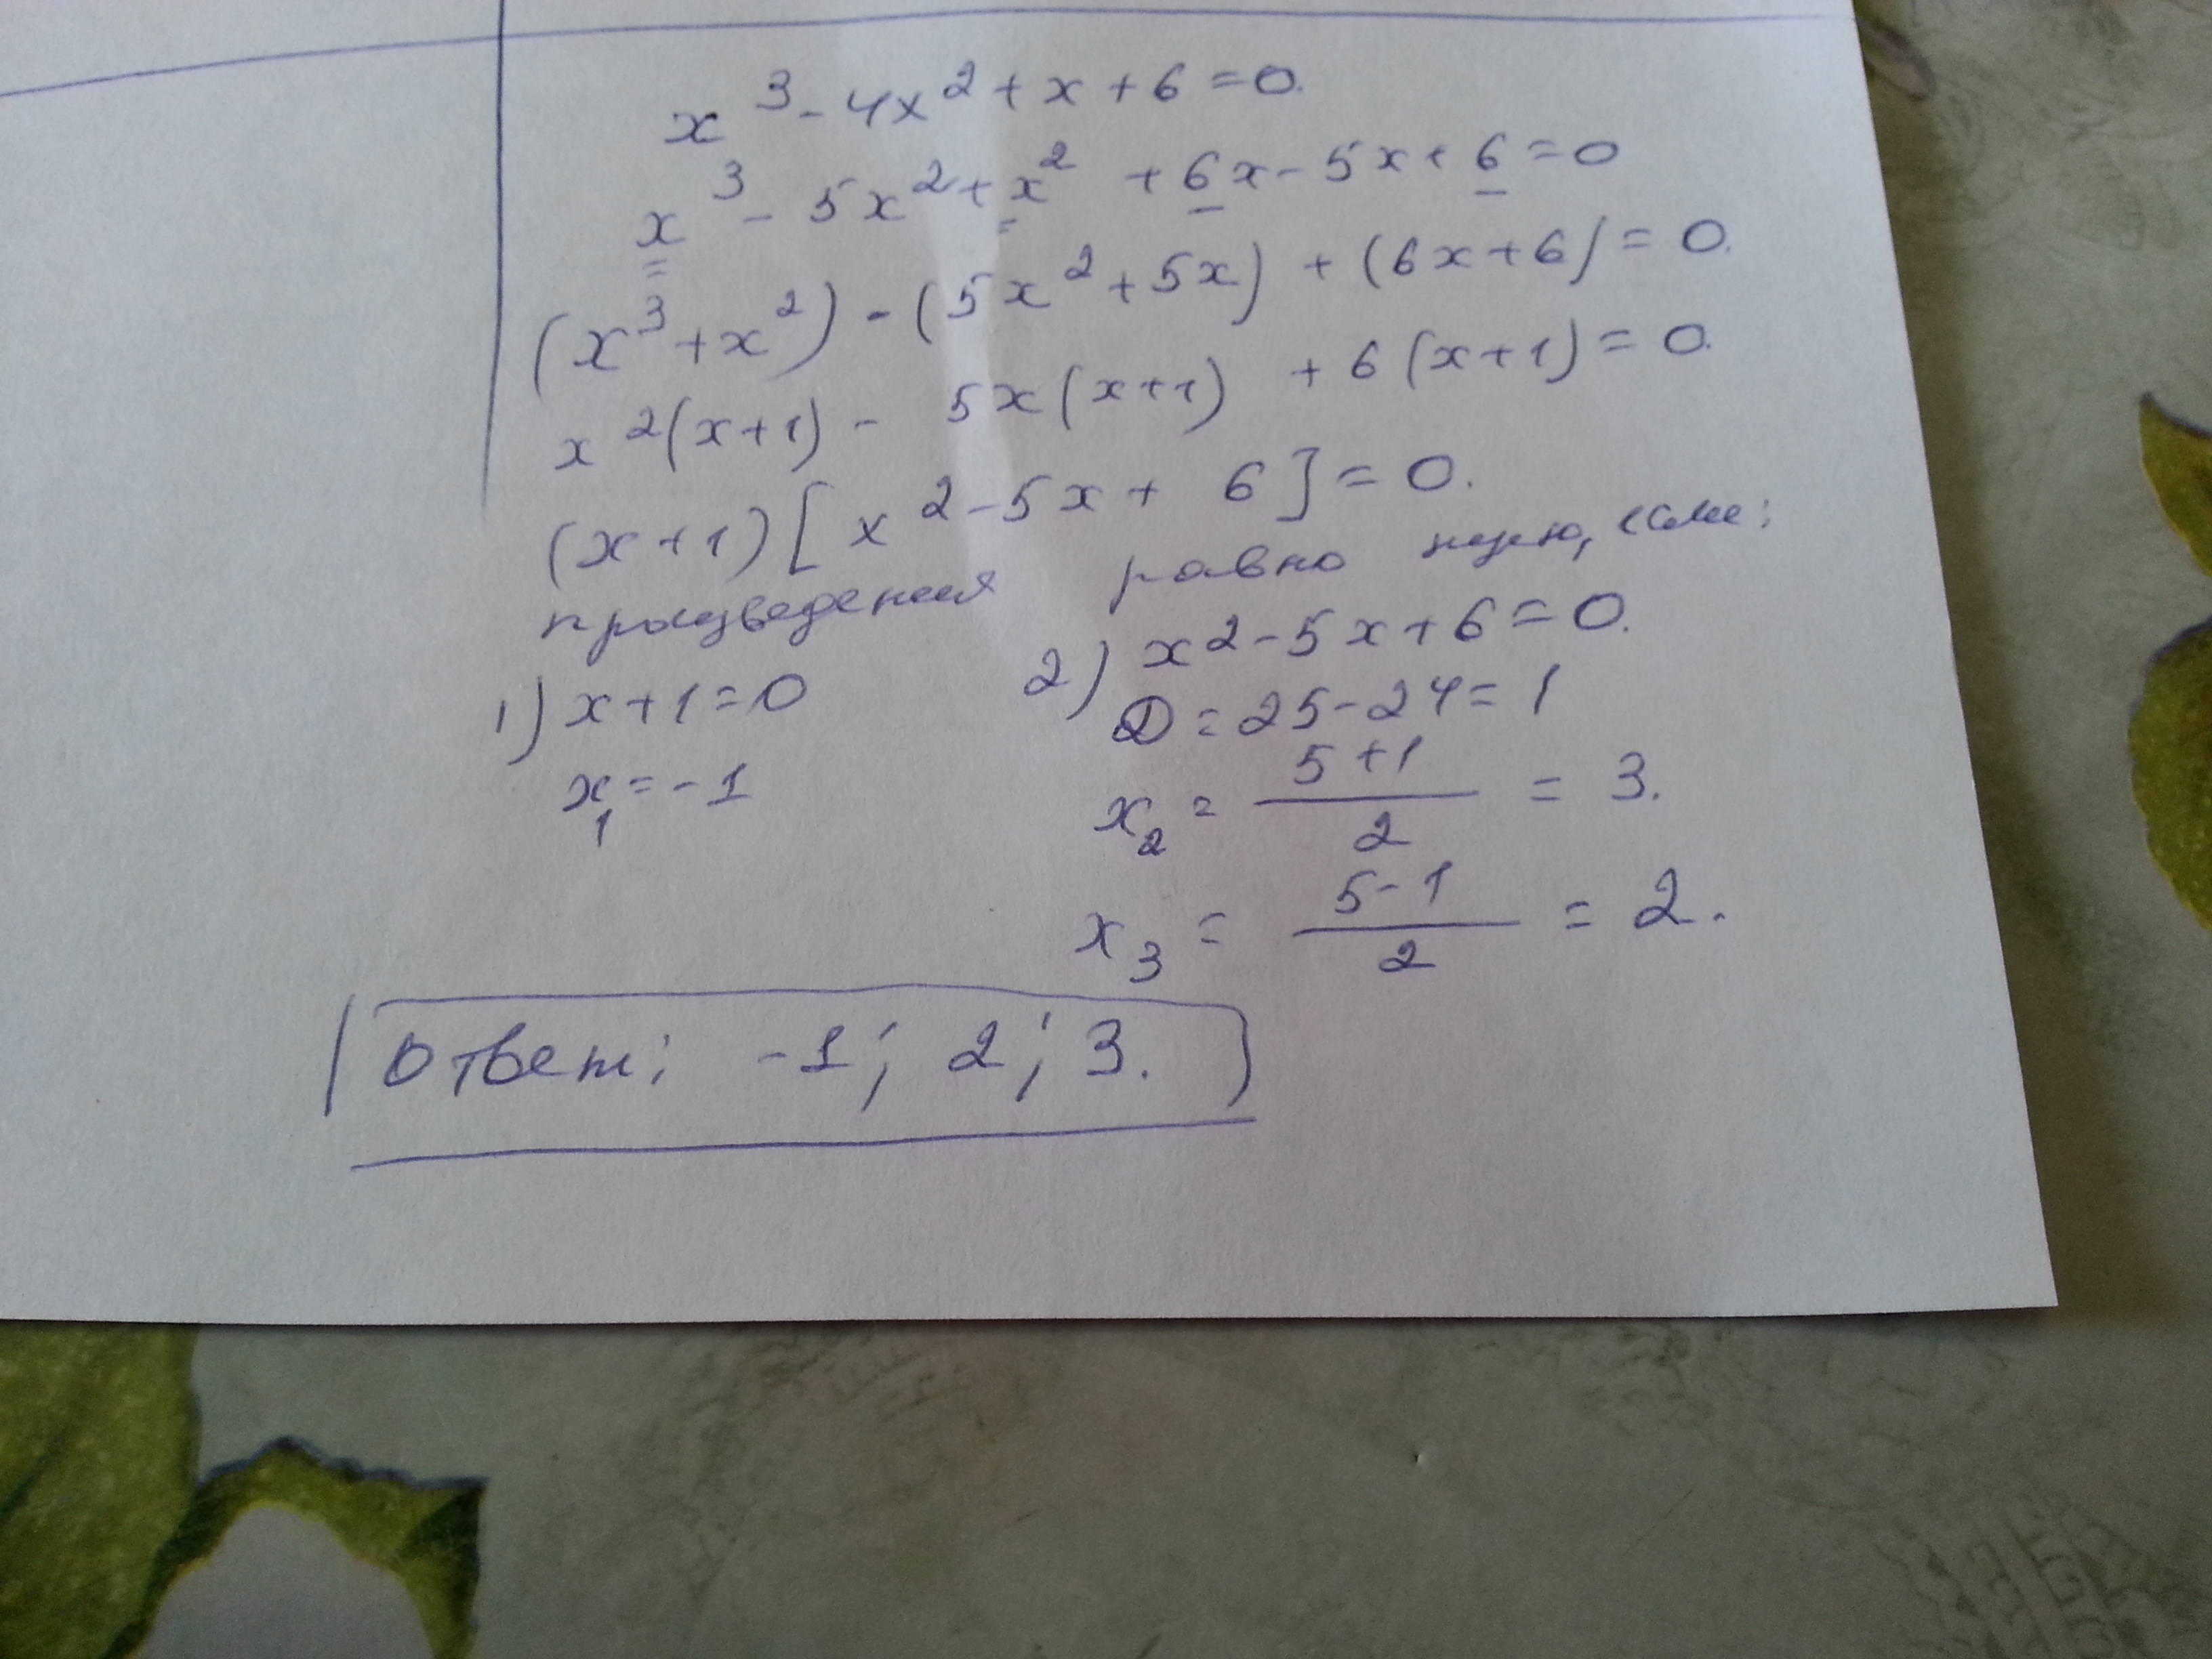 x³ - 4x² + x + 6 = 0.
x³ - 5x² + x² + 6x - 5x + 6 = 0
(x³ + x²) - (5x² + 5x) + (6x + 6) = 0.
x²(x+1) - 5x(x+1) + 6(x+1) = 0.
(x+1)[x² - 5x + 6] = 0.
произведения равно нулю, если:
1) x+1=0
x₁ = -1
2) x² - 5x + 6 = 0.
D = 25 - 24 = 1
x₂ = (5+1)/2 = 3.
x₃ = (5-1)/2 = 2.
Ответ: -1; 2; 3.